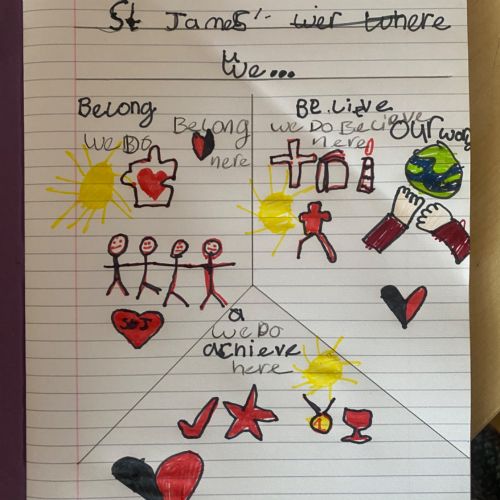 St James' wer where
we...
Belong
we Do
Belong
here
BE.lieve
we Do Believe
here
our wor
StJ
a
we Do
achieve
here
1